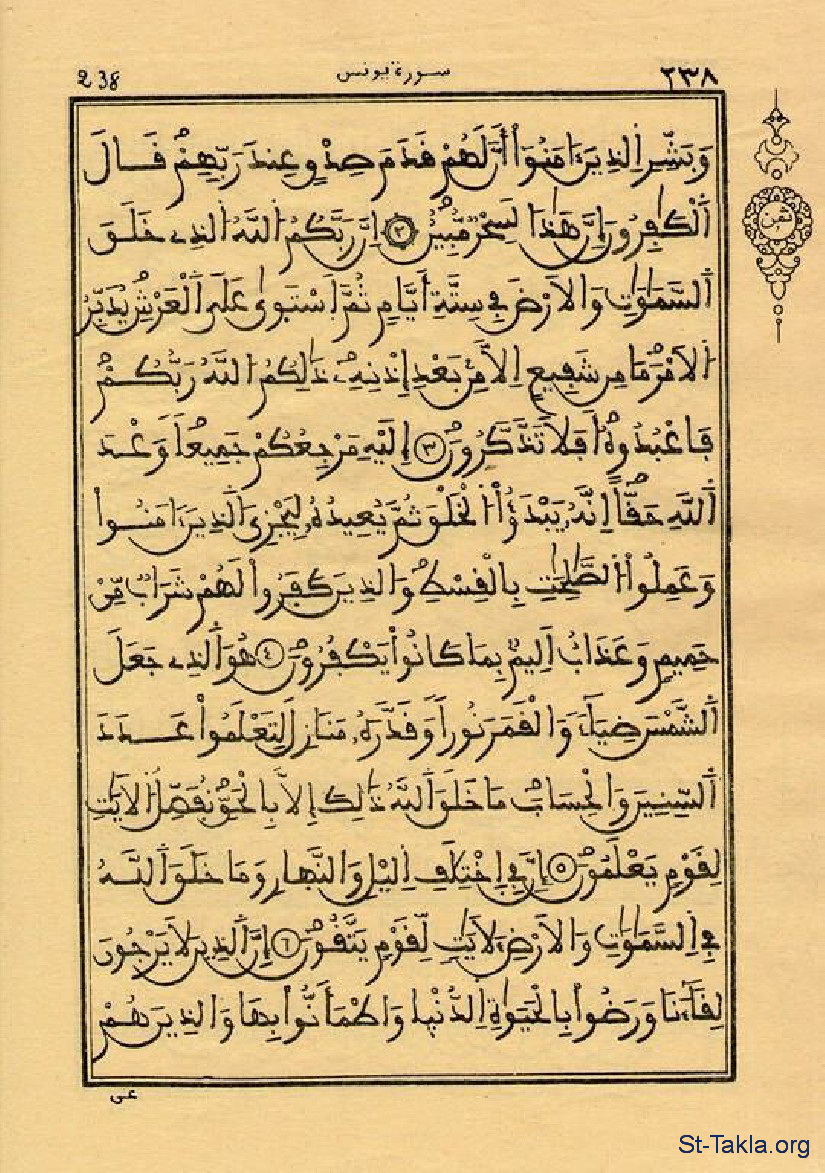 238 سورة يونس ٢٣٨
وَبَشِّرِ اِلذِينَ ءَامَنُوٓاْ أَنَّ لَهُمْ قَدَمَ صِدْقٍ عِندَ رَبِّهِمْ قَالَ
ثمن
اَ۬لْكَٰفِرُونَ إِنَّ هَٰذَا لَسِحْرٞ مُّبِينٌ ٢ إِنَّ رَبَّكُمُ اُ۬للَّهُ اُ۬لذِے خَلَقَ
اَ۬لسَّمَٰوَٰتِ وَالَارْضَ فِے سِتَّةِ أَيَّامٖ ثُمَّ اَ۪سْتَوَىٰ عَلَى اَ۬لْعَرْشِ يُدَبِّرُ
اُ۬لَامْرَ مَا مِن شَفِيعٍ اِلَّا مِنۢ بَعْدِ إِذْنِهِۦ ذَٰلِكُمُ اُ۬للَّهُ رَبُّكُمْ
فَاعْبُدُوهُ أَفَلَا تَذَّكَّرُونَ ٣ إِلَيْهِ مَرْجِعُكُمْ جَمِيعاٗ وَعْدَ
اَ۬للَّهِ حَقّاً اِنَّهُۥ يَبْدَؤُاْ اُ۬لْخَلْقَ ثُمَّ يُعِيدُهُۥ لِيَجْزِيَ اَ۬لذِينَ ءَامَنُواْ
وَعَمِلُواْ اُ۬لصَّٰلِحَٰتِ بِالْقِسْطِ وَالذِينَ كَفَرُواْ لَهُمْ شَرَابٞ مِّنْ
حَمِيمٖ وَعَذَابٌ اَلِيمُۢ بِمَا كَانُواْ يَكْفُرُونَ ٤ هُوَ اَ۬لذِے جَعَلَ
اَ۬لشَّمْسَ ضِيَآءٗ وَالْقَمَرَ نُوراٗ وَقَدَّرَهُۥ مَنَازِلَ لِتَعْلَمُواْ عَدَدَ
اَ۬لسِّنِينَ وَالْحِسَابَ مَا خَلَقَ اَ۬للَّهُ ذَٰلِكَ إِلَّا بِالْحَقِّ نُفَصِّلُ اُ۬لَايَٰتِ
لِقَوْمٖ يَعْلَمُونَ ٥ إِنَّ فِے اِ۪خْتِلَٰفِ اِ۬ليْلِ وَالنَّهارِ وَمَا خَلَقَ اَ۬للَّهُ
فِے اِ۬لسَّمَٰوَٰتِ وَالَارْضِ لَأٓيَٰتٖ لِّقَوْمٖ يَتَّقُونَ ٦ إِنَّ اَ۬لذِينَ لَا يَرْجُونَ
لِقَآءَنَا وَرَضُواْ بِالْحَيَوٰةِ اِ۬لدُّنْيا وَاطْمَأَنُّواْ بِهَا وَالذِينَ هُمْ
عن
St-Takla.org